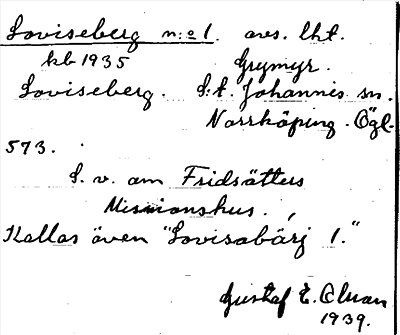 Loviseberg n:o 1. avs. lht.
kb 1935 Grymyr.
Loviseberg. S:t. Johannis sn.
Norrköping. Ögl.
573.
S. v. om Fridsätters
Missionshus.
Kallas även "Lovisabärj 1."
Gustaf E.
1939.